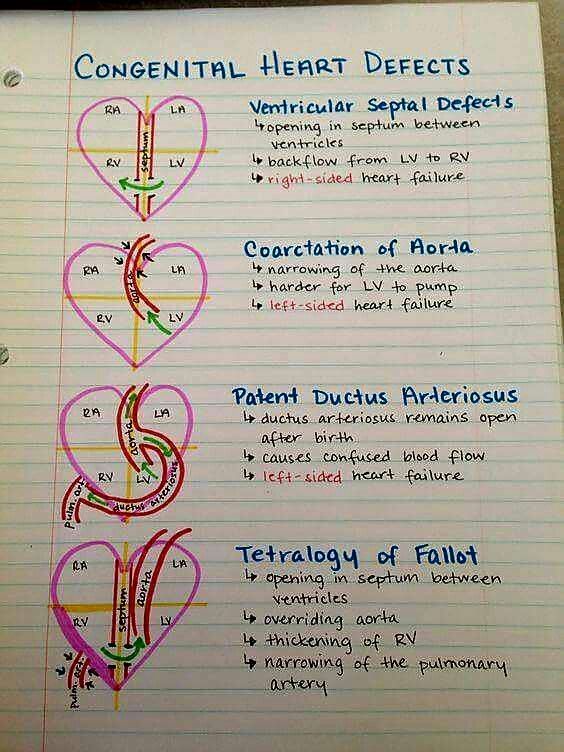 CONGENITAL HEART DEFECTS
RA LA
septum
RV LV
Ventricular Septal Defects
↳ opening in septum between
ventricles
↳ backflow from LV to RV
↳ right-sided heart failure
RA LA
aorta
RV LV
Coarctation of Aorta
↳ narrowing of the aorta
↳ harder for LV to pump
↳ left-sided heart failure
RA LA
aorta
RV LV
ductus arteriosus
pulm. art.
Patent Ductus Arteriosus
↳ ductus arteriosus remains open
after birth
↳ causes confused blood flow
↳ left-sided heart failure
RA LA
septum
aorta
RV LV
pulm. art.
Tetralogy of Fallot
↳ opening in septum between
ventricles
↳ overriding aorta
↳ thickening of RV
↳ narrowing of the pulmonary
artery